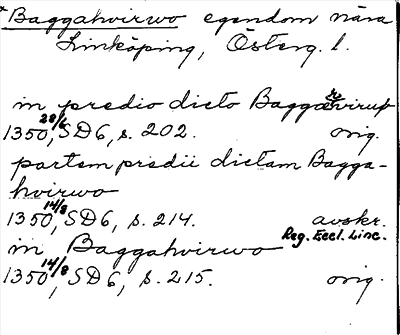 Baggahvirwo egendom nära
Linköping, Österg. l.
in predio dicto Baggahvirup
1350 28/6, SD 6, s. 202. orig.
partem predii dictam Bagga-
hvirwo
1350 14/8, SD 6, s. 214. avskr.
Reg. Eccl. Linc.
in Baggahvirwo
1350 14/8, SD 6, s. 215. orig.